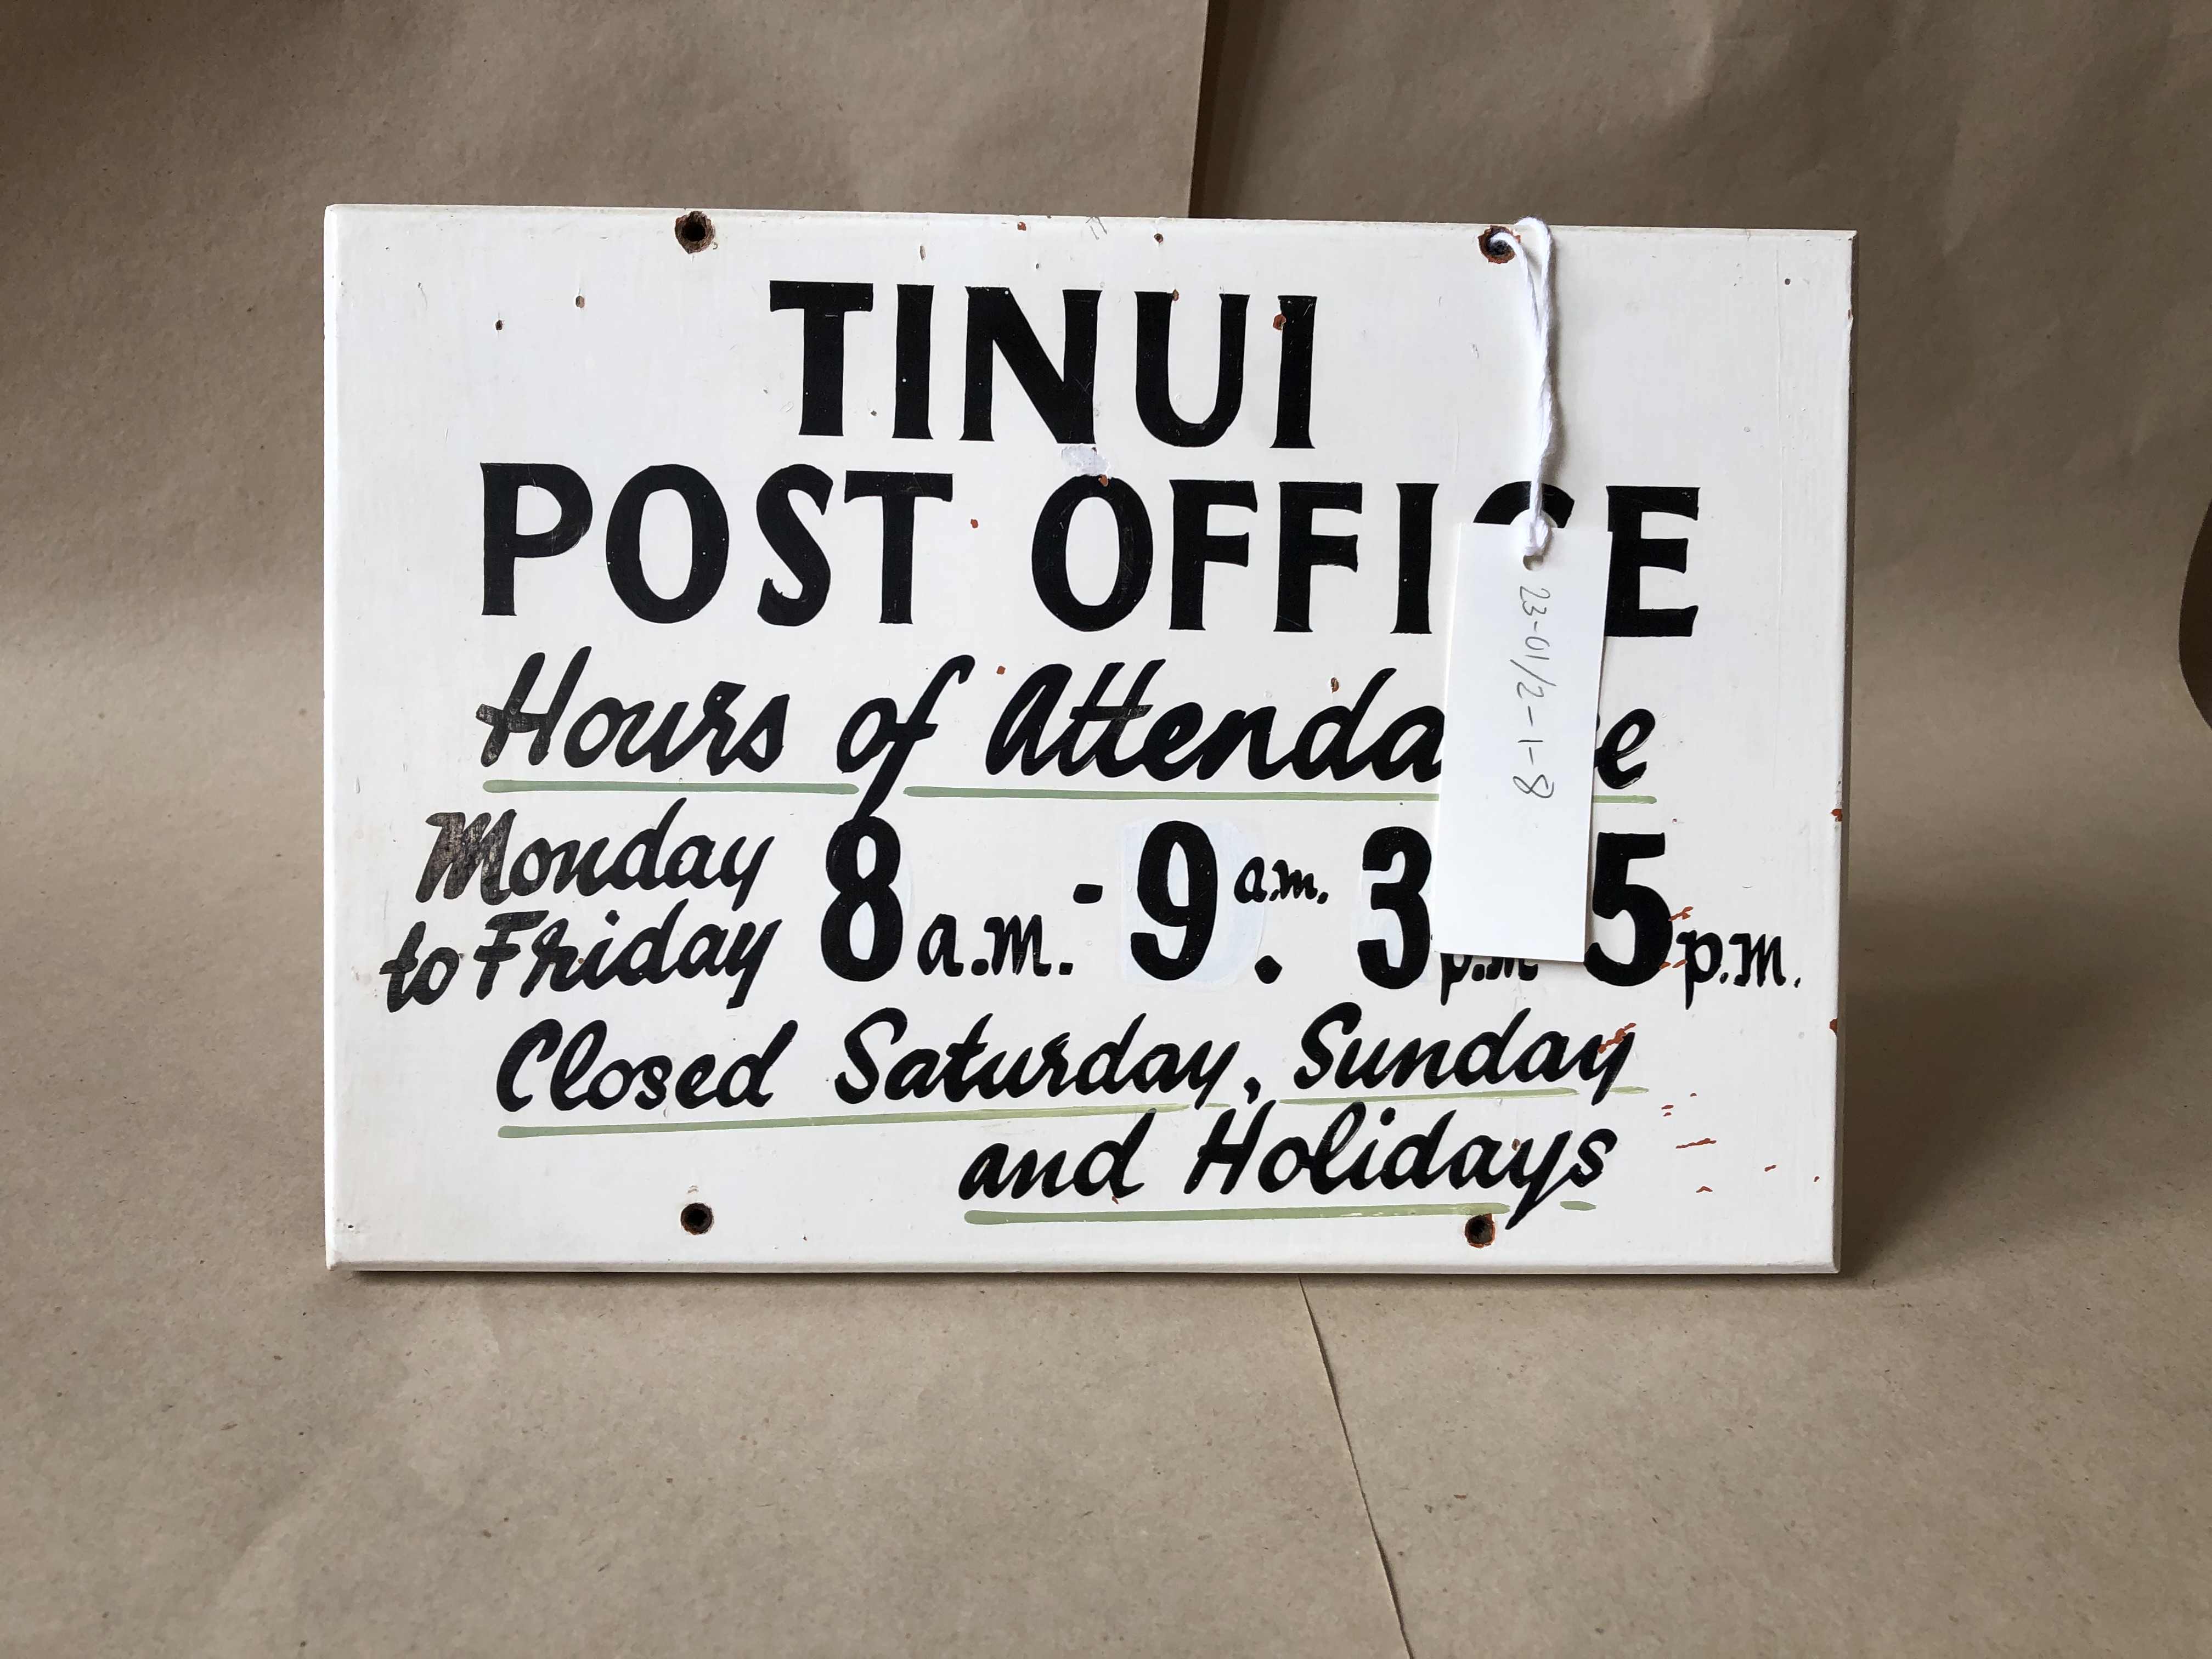 TINUI
POST OFFICE
Hours of Attendance
Monday to Friday 8 a.m. - 9 a.m. 3 p.m 5 p.m.
Closed Saturday, Sunday
and Holidays
23-01/2-1-8